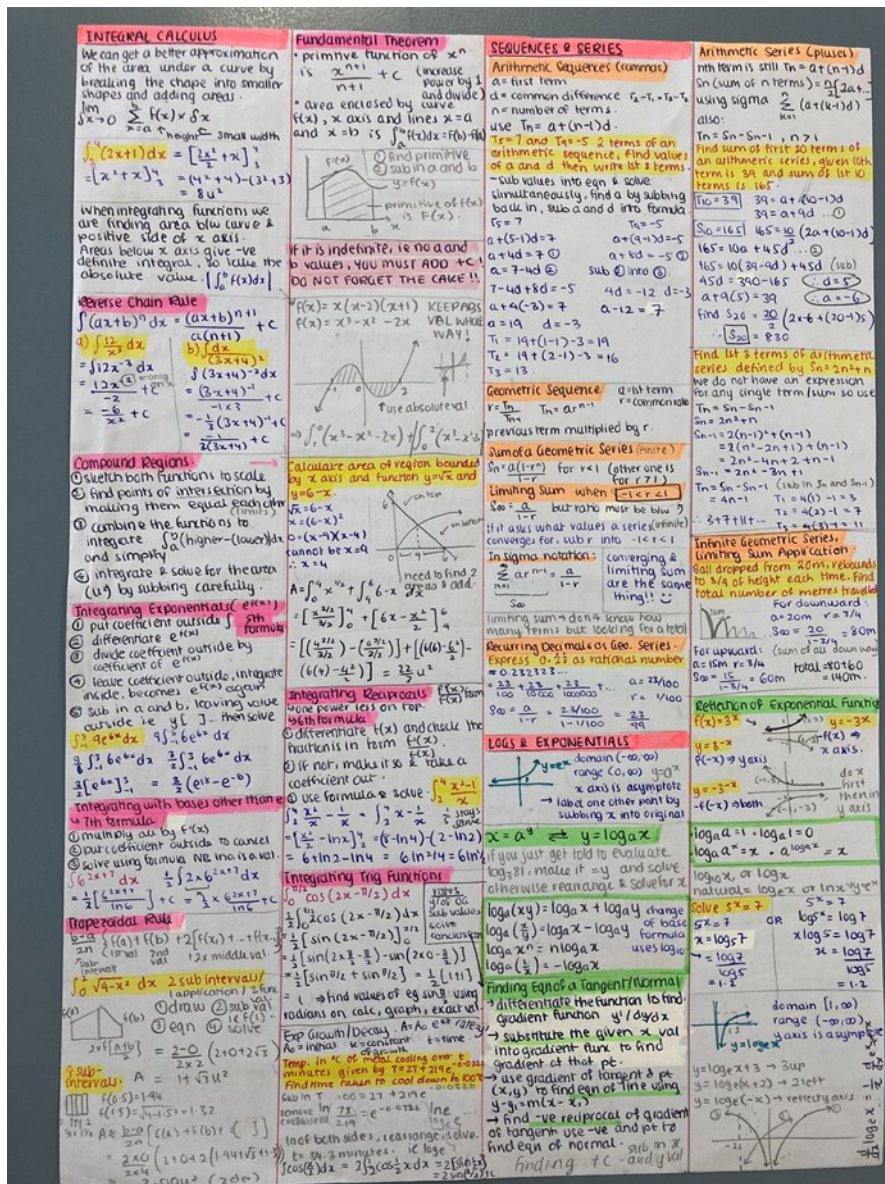 INTEGRAL CALCULUS
We can get a better approximation
of the area under a curve by
breaking the shape into smaller
shapes and adding areas.
lim δx→0 Σ x=a b f(x) × δx
height small width
∫₃⁴ (2x+1) dx = [2x²/2 + x]₃⁴
= [x² + x]₃⁴ = (4²+4) - (3²+3)
= 8u²
When integrating functions we
are finding area b/w curve &
positive side of x axis.
Areas below x axis give -ve
definite integral. So take the
absolute value. |∫ₐᵇ f(x)dx|
Reverse Chain Rule
∫(ax+b)ⁿ dx = (ax+b)ⁿ⁺¹ / a(n+1) + c
a) ∫12/x³ dx
= ∫12x⁻³ dx
= 12x⁻² / -2 + c
= -6/x² + c
b) ∫dx/(3x+4)²
∫(3x+4)⁻² dx
= (3x+4)⁻¹ / -1×3 + c
= -1/3 (3x+4)⁻¹ + c
= -1/3(3x+4) + c
Compound Regions.
① sketch both functions to scale
② find points of intersection by
making them equal each other
(limits)
③ combine the functions to
integrate ∫ₐᵇ (higher-(lower))dx
and simplify
④ integrate & solve for the area
(u²) by subbing carefully.
Integrating Exponentials (e^f(x))
5th formula
① put coefficient outside ∫
② differentiate e^f(x)
③ divide coefficient outside by
coefficient of e^f(x)
④ leave coefficient outside, integrate
inside. becomes e^f(x) again
⑤ sub in a and b, leaving value
outside ie y[ ]. then solve
9∫6e^6x dx
3/2 ∫ 6e^6x dx
3/2 [e^6x] = 3/2 (e^18 - e^-6)
Integrating with bases other than e
↳ 7th formula
① multiply all by f'(x)
② put coefficient outside to cancel
③ solve using formula NB lna is a val.
∫6^2x+7 dx 1/2 ∫2×6^2x+7 dx
Trapezoidal Rule
∫₀² √4-x² dx 2 subintervals/
① draw ② sub val
③ eqn ④ solve
= 2-0 / 2×2 (2+0+2√3)
A = 1+√3 u²
f(0.5)=1.94
f(1.5)=√4-1.5²=1.32
Fundamental Theorem
• primitive function of xⁿ
is xⁿ⁺¹/n+1 + c (increase
power by 1
and divide)
• area enclosed by curve
f(x), x axis and lines x=a
and x=b is ∫ₐᵇ f(x)dx=F(b)-F(a)
f(x)
① find primitive
② sub in a and b
y=f(x)
primitive of f(x)
is F(x).
a b x
if it is indefinite, ie no a and
b values, YOU MUST ADD +C!
DO NOT FORGET THE CAKE!!
f(x)= x(x-2)(x+1)
f(x)= x³-x²-2x
KEEP ABS
VAL WHOLE
WAY!
use absolute val.
Calculate area of region bounded
by x axis and function y=√x and
y=6-x.
√x=6-x
x=(6-x)²
0=(x-9)(x-4)
cannot be x=9
∴ x=4
on top
4 6
need to find 2
areas & add.
A=∫₀⁴ x^1/2 + ∫₄⁶ 6-x dx
= [x^3/2 / 3/2]₀⁴ + [6x - x²/2]₄⁶
= 22/3 u²
Integrating Reciprocals f'(x)/f(x) form
↳ one power less on top.
↳ 6th formula
① differentiate f(x) and check the
fraction is in form f'(x)/f(x).
② if not, make it so & take a
coefficient out.
③ use formula & solve. ∫₂⁴ x²-1/x
∫₂⁴ x²/x - 1/x = ∫₂⁴ x - 1/x
= [x²/2 - lnx]₂⁴ = (8-ln4)-(2-ln2)
= 6+ln2-ln4 = 6 ln2/4 = 6ln½
Integrating Trig Functions
∫₀^π/2 cos (2x-π/2) dx
½∫2cos (2x-π/2) dx
½ [sin (2x-π/2)]₀^π/2
½[sin(2×π/2-π/2) - sin(2×0-π/2)]
= ½[sin π/2 + sin π/2] = ½[1+1]
= 1 → find values of eg sin π/2 using
radians on calc, graph, exact val
Exp Growth/Decay.
A₀=initial k=constant t=time.
of growth
Temp. in °C of metal cooling over t
minutes given by T=27+219e^-0.032t
Find time taken to cool down to 100°C
sub in T 100 = 27+219e^-0.032t
73/219 = e^-0.032t
ln of both sides, rearrange, solve.
t= 34.3 minutes.
SEQUENCES & SERIES
Arithmetic Sequences (commas)
a=first term
d= common difference T₂-T₁=T₃-T₂
n=number of terms.
use Tn= a+(n-1)d.
T₅=7 and T₉=-5 2 terms of an
arithmetic sequence, find values
of a and d then write 1st 3 terms.
-sub values into eqn & solve
simultaneously, find a by subbing
back in, sub a and d into formula.
T₅=7 T₉=-5
a+(5-1)d=7 a+(9-1)d=-5
a+4d=7 ① a+8d=-5 ②
a=7-4d ② sub ② into ③
7-4d+8d=-5 4d=-12 d=-3
a+4(-3)=7 a-12=7
a=19 d=-3
T₁ = 19+(1-1)-3=19
T₂ = 19+(2-1)-3=16
T₃=13.
Geometric Sequence a=1st term
r=Tn/Tn-1 Tn=arⁿ⁻¹ r=common ratio
previous term multiplied by r.
Sum of a Geometric Series (finite)
Sn=a(1-rⁿ)/1-r for r<1 (other one is
for r>1)
Limiting Sum when -1<r<1
S∞= a/1-r but ratio must be b/w
if it asks what values a series (infinite)
converges for, sub r into -1<r<1
In sigma notation:
Σ n=1 ∞ arⁿ⁻¹ = a/1-r
S∞
converging &
limiting sum
are the same
thing!!
limiting sum → don't know how
many terms but looking for a total
Recurring Decimals as Geo. Series.
Express 0.23 as rational number
= 0.232323...
= 23/100 + 23/10000 + 23/1000000 + ... a= 23/100
r= 1/100
S∞= a/1-r = 23/100 / 1-1/100 = 23/99
LOGS & EXPONENTIALS
y=eˣ
domain (-∞,∞)
range (0,∞) y=aˣ
x axis is asymptote
→ label one other point by
subbing x into original
x=aʸ ⇄ y=logₐx
if you just get told to evaluate
log₃81, make it =y and solve.
otherwise rearrange & solve for x
logₐ(xy)= logₐx+logₐy
logₐ(x/y)= logₐx-logₐy
logₐxⁿ = nlogₐx
logₐ(1/x)= -logₐx
change
of base
formula
uses log₁₀
Finding Eqn of a Tangent/Normal
→ differentiate the function to find
gradient function y'/dy/dx
→ substitute the given x val
into gradient funx to find
gradient at that pt.
→ use gradient of tangent & pt
(x,y) to find eqn of line using
y-y₁=m(x-x₁)
→ find -ve reciprocal of gradient
of tangent use -ve and pt to
find eqn of normal.
finding +c - sub in x
and y val
Arithmetic Series (pluses)
nth term is still Tn=a+(n-1)d
Sn (sum of n terms)=n/2[2a+...
using sigma Σ (a+(k-1)d)
also:
Tn= Sn-Sn-1, n>1
Find sum of first 20 terms of
an arithmetic series, given 10th
term is 39 and sum of 1st 10
terms is 165.
T₁₀=39 39=a+(10-1)d
39=a+9d ...①
S₁₀=165 165=10/2 (2a+(10-1)d)
165=10a+45d ...②
165=10(39-9d)+45d (sub)
45d=390-165 ∴ d=5
a+9(5)=39 ∴ a=-6
find S₂₀= 20/2 (2×-6+(20-1)5)
∴ S₂₀ = 830
Find 1st 3 terms of arithmetic
series defined by Sn=2n²+n
we do not have an expression
for any single term/sum so use
Tn=Sn-Sn-1
Sn=2n²+n
Sn-1=2(n-1)²+(n-1)
=2(n²-2n+1)+(n-1)
=2n²-4n+2+n-1
Sn-1=2n²-3n+1
Tn=Sn-Sn-1 (sub in Sn and Sn-1)
=4n-1 T₁=4(1)-1=3
T₂=4(2)-1=7
∴ 3+7+11+... T₃=4(3)-1=11
Infinite Geometric Series,
Limiting Sum Application
Ball dropped from 20m, rebounds
to 3/4 of height each time. Find
total number of metres travelled
20m
For downward:
a=20m r=3/4
S∞= 20/1-3/4 = 80m
For upward: (sum of all down now)
a=15m r=3/4 total=80+60
S∞= 15/1-3/4 = 60m =140m.
Reflection of Exponential Function
f(x)=3ˣ y=-3ˣ
-f(x) →
x axis.
y=3⁻ˣ
f(-x) → y axis
y=-3⁻ˣ
-f(-x) → both
(-1,-3)
do x
first
then in
y axis
logₐa=1 • logₐ1=0
logₐaˣ=x • a^logₐx = x
log₁₀x or logx
natural=logₑx or lnx
Solve 5ˣ=7
5ˣ=7
x=log₅7
= log7/log5
=1.2
OR
5ˣ=7
log5ˣ=log7
xlog5=log7
x= log7/log5
=1.2
y=logₑx
range (-∞,∞)
y axis is asymptote
y=logₑx+3 → 3up
y=logₑ(x+2) → 2left
y=logₑ(-x) → reflect y axis